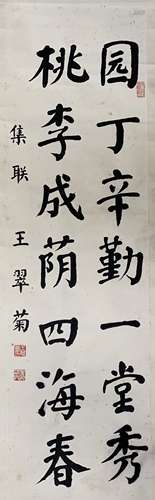 园丁辛勤一堂秀
桃李成荫四海春
集联 王翠菊